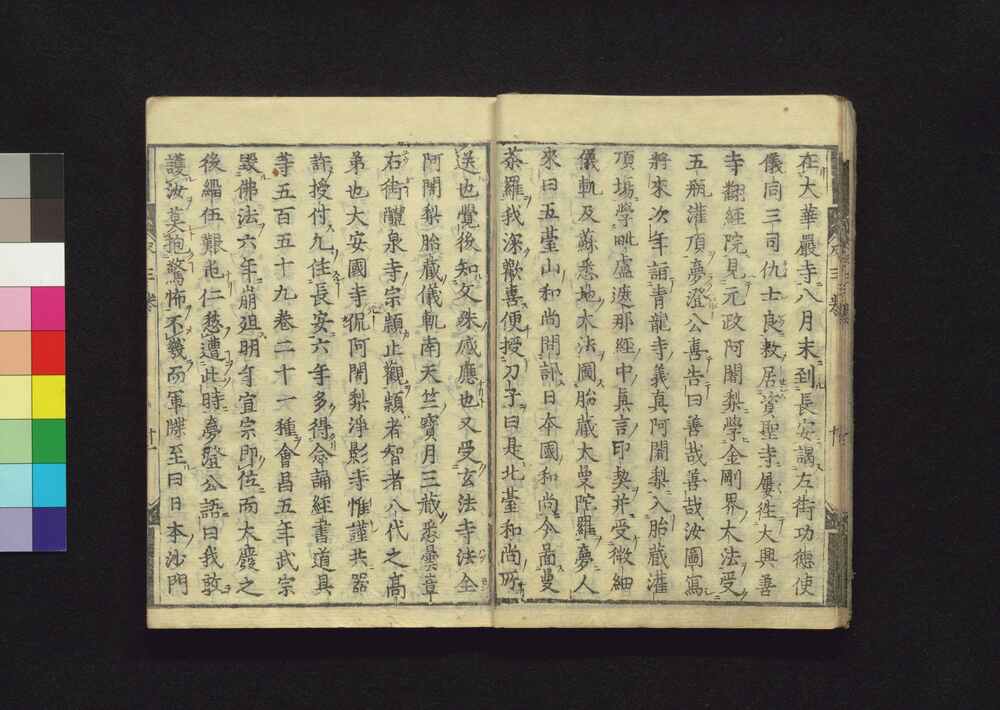 在大華嚴寺八月末到長安謁左街功德使
儀同三司仇士良敕居資聖寺屢徃大興善
寺翻經院見元政阿闍梨學金剛界大法受
五瓶灌頂夢澄公喜告曰善哉善哉汝圖寫
將來次年詣青龍寺義真阿闍梨入胎藏灌
頂壇學毗盧遮那經中真言印契并受微細
儀軌及蘇悉地大法圖胎藏大曼陀羅夢人
來曰五臺山和尚問訊日本國和尚今圖曼
荼羅我深歡喜便授刀子曰是北臺和尚所
送也覺後知文殊感應也又受玄法寺法全
阿闍梨胎藏儀軌南天竺寶月三藏悉曇章
右街醴泉寺宗頴止觀頴者智者八代之高
弟也大安國寺侃阿闍梨淨影寺惟謹共器
許授付九住長安六年多得念誦經書道具
等五百五十九卷二十一種會昌五年武宗
毀佛法六年崩廹明年宣宗即位而大廢之
後緇伍艱危仁愁遭此時夢澄公語曰我敢
護汝莫抱驚怖不幾而軍牒至曰日本沙門